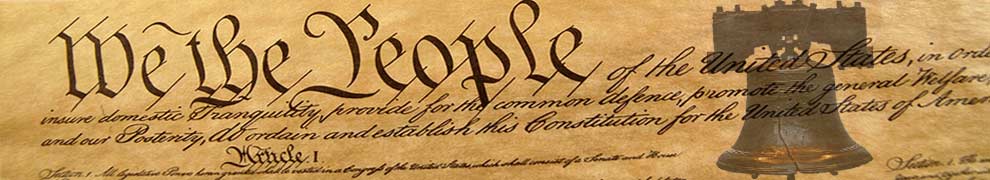 We the People of the United States, in orde
insure domestic Tranquility, provide for the common defence, promote the general Welfare,
and our Posterity, do ordain and establish this Constitution for the United States of Amer
Article. I
Section. 1. All legislative Powers herein granted shall be vested in a Congress of the United States, which shall consist of a Senate and House
Section. 1.